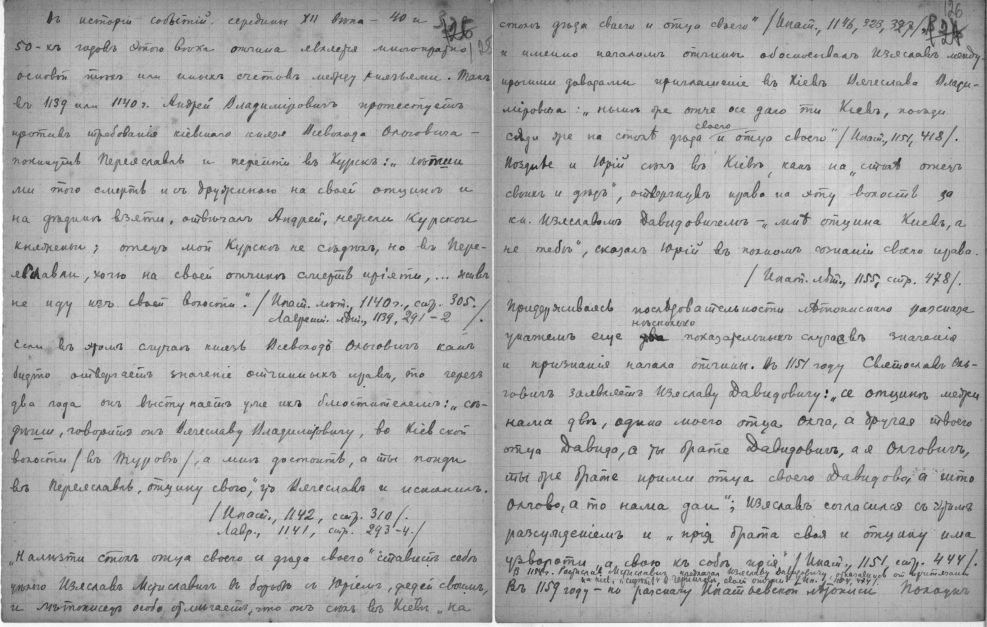 Въ исторіи событій середины XII вѣка – 40 и
50-хъ годовъ этого вѣка отчина является многократно
основой тѣхъ или иныхъ счетовъ между князьями. Такъ
въ 1139 или 1140 г. Андрей Владиміровичъ протестуетъ
противъ требованія кіевскаго князя Всеволода Ольговича –
покинуть Переяславль и перейти въ Курскъ: „лѣтши
ми того смерть и съ дружиною на своей отчинѣ и
на дѣдинѣ взяти, отвѣчалъ Андрей, нежели Курское
княженье; отецъ мой Курскѣ не сѣдѣлъ, но въ Пере-
яславли, хочю на своей отчинѣ смерть пріяти, ... живъ
не иду изъ своей волости." /Ипат. лѣт., 1140 г., стр. 305.
Лаврент. лѣт., 1139, 291-2 /.
Если въ этомъ случаѣ князь Всеволодъ Ольговичъ какъ
будто отвергаетъ значеніе отчинныхъ правъ, то черезъ
два года онъ выступаетъ уже ихъ блюстителемъ: „сѣ-
дѣши, говоритъ онъ Вячеславу Владиміровичу, во Кіевской
волости / въ Туровѣ /, а мнѣ достоитъ, а ты пойди
въ Переяславль, отчину свою", что Вячеславъ и исполнилъ.
/ Ипат., 1142, стр. 310 /.
Лавр., 1141, стр. 293-4 /.
„Налѣзти столъ отца своего и дѣда своего" ставитъ себѣ
Изяславъ Мстиславичъ въ борьбѣ съ Юріемъ, дядей своимъ,
и лѣтописецъ особо отмѣчаетъ, что онъ сѣлъ въ Кіевѣ „на
126
столѣ дѣда своего и отца своего" / Ипат., 1146, 323, 327 /,
и именно началомъ отчины обосновывалъ Изяславъ между
прочими доводами приглашеніе въ Кіевъ Вячеслава Влади-
міровича: „нынѣ же отче осе даю ти Кіевъ, поиди
сяди же на столѣ дѣда своего и отца своего" / Ипат., 1151, 418 /.
Позднѣе и Юрій сѣлъ въ Кіевѣ, какъ на „столѣ отецъ
своихъ и дѣдъ", отвергнувъ право на эту волость за
кн. Изяславомъ Давидовичемъ – „мнѣ отчина Киевъ, а
не тебѣ", сказалъ Юрій въ полномъ сознаніи своего права.
/ Ипат. лѣт., 1155, стр. 478 /.
Придерживаясь послѣдовательности лѣтописнаго разсказа
укажемъ еще нѣсколько показательныхъ случаевъ значенія
и признанія начала отчины. Въ 1151 году Святославъ Оль-
говичъ заявляетъ Изяславу Давидовичу: „се отчинѣ межи
нама двѣ, одина моего отца Олга, а другая твоего
отца Давида, а ты брате Давидовичъ, а я Олговичъ,
ты же брате прими отца своего Давидово, а што
Олгово, а то нама дай"; Изяславъ согласился съ этимъ
разсужденіемъ и „прія брата своя и отчину има
узвороти, а свою къ собѣ прія" / Ипат., 1151, стр. 444 /.
Въ 1159 году – по разсказу Ипатьевской лѣтописи